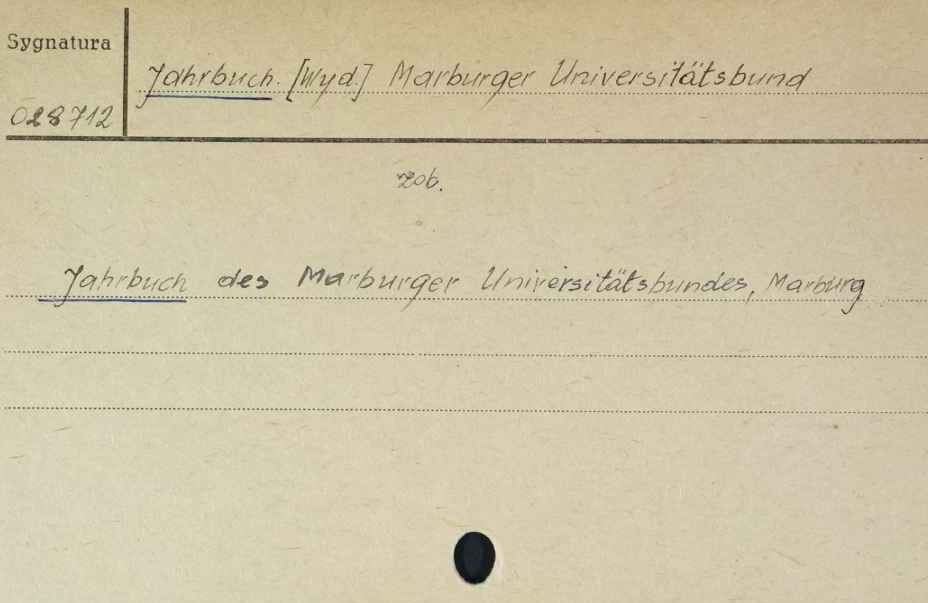 Sygnatura
Jahrbuch. [Wyd.] Marburger Universitätsbund
028712
zob.
Jahrbuch des Marburger Universitätsbundes, Marburg